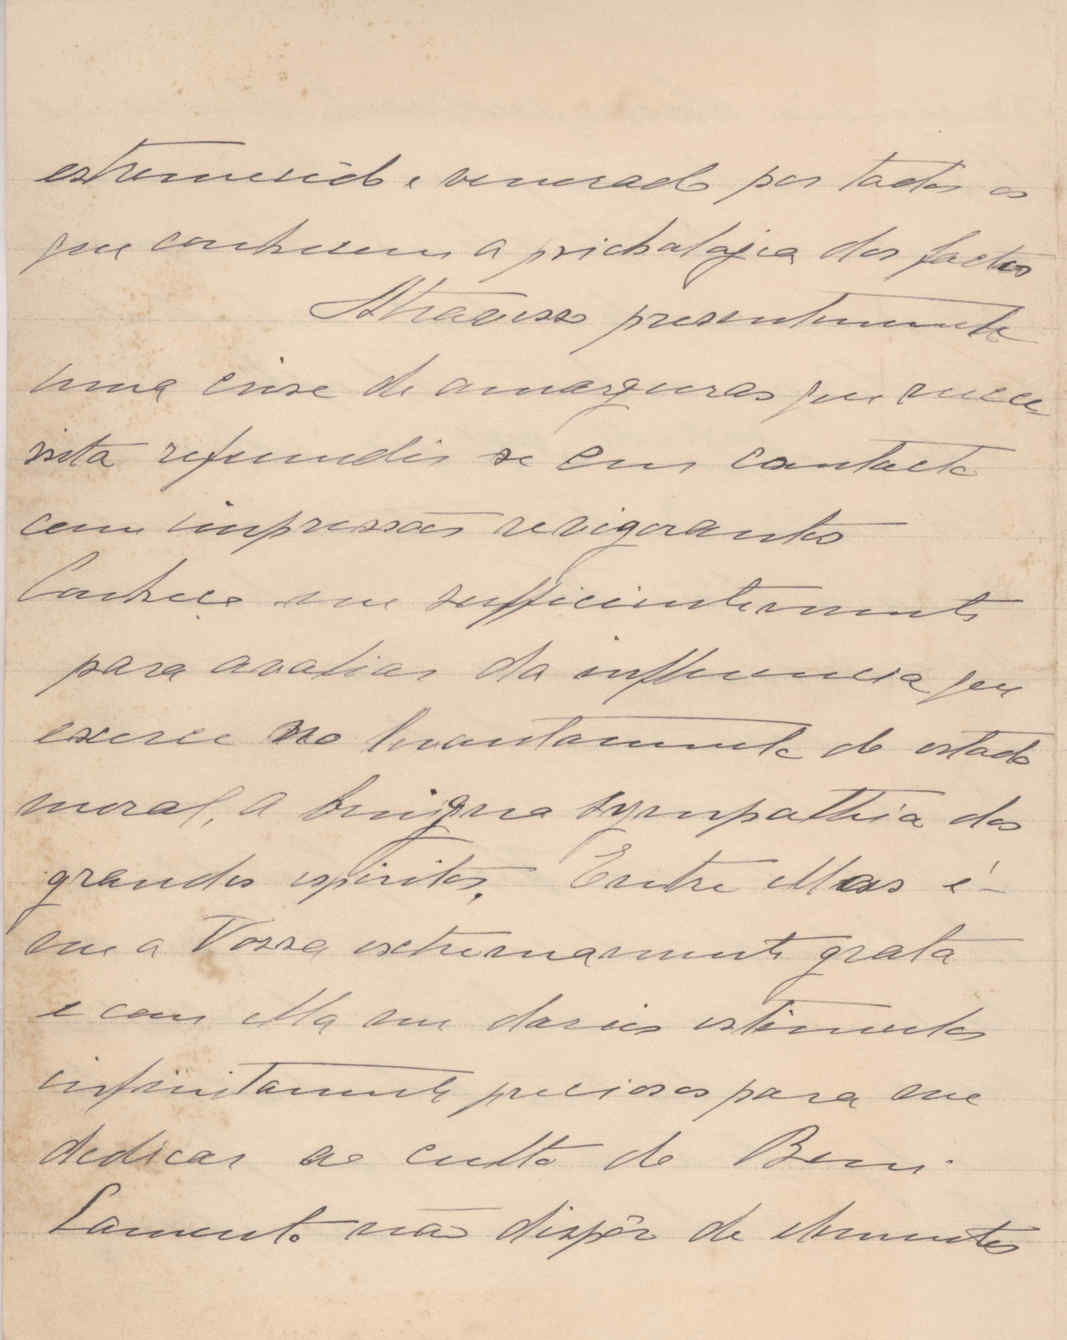 estremecido e venerado por todos os
que conhecem a psichologia dos factos
Atravesso presentemente
uma crise de amarguras que
refundir se em contacto
com impressões revigorantes
Conheço me sufficientemente
para avaliar da influencia que
exerce no levantamento do estado
moral, a benigna sympathia dos
grandes espiritos. Entre ellas é-
me a Vossa extremamente grata
e com ella me dareis estimulos
infinitamente preciosos para me
dedicar ao culto do Bem.
Lamento não dispôr de elementos